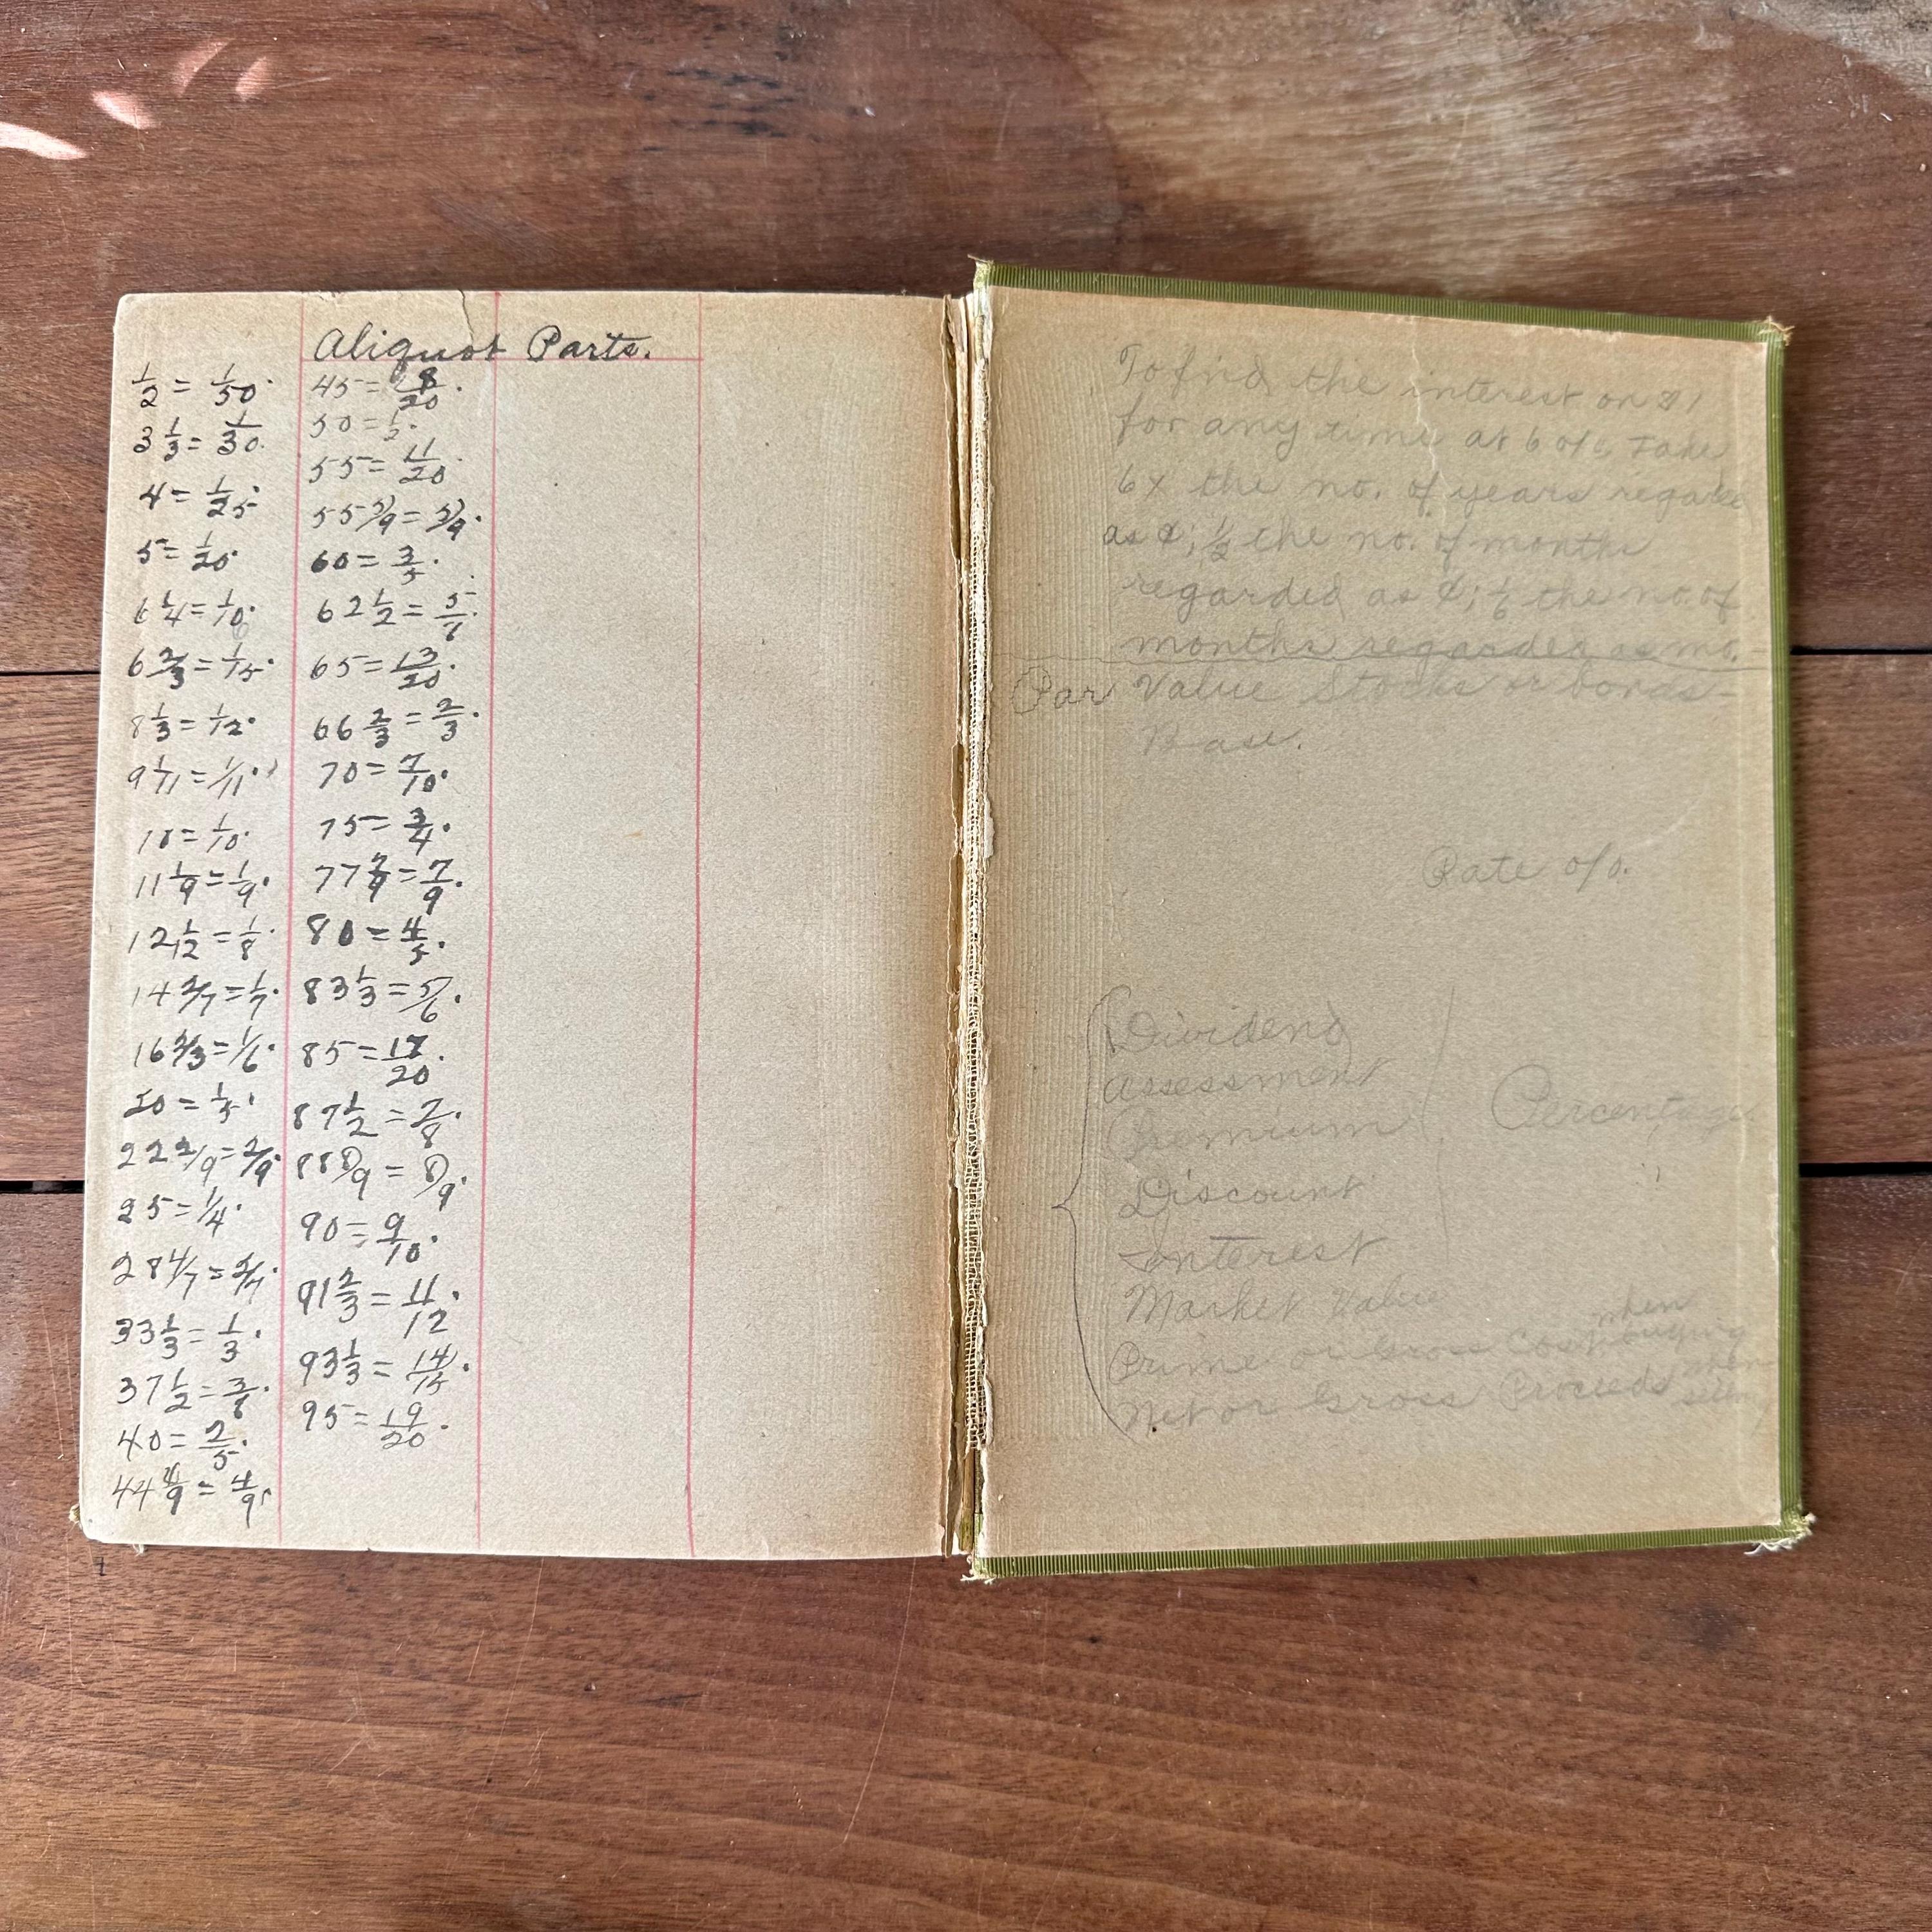 Aliquot Parts.
1/2 = 1/50.
3 1/3 = 1/30.
4 = 1/25.
5 = 1/20.
6 1/4 = 1/10.
6
6 2/3 = 1/15.
8 1/3 = 1/12.
9 1/11 = 1/11.
10 = 1/10.
11 1/9 = 1/9.
12 1/12 = 1/8.
14 2/7 = 1/7.
16 2/3 = 1/6.
20 = 1/5.
22 2/9 = 2/9.
25 = 1/4.
28 4/7 = 2/7.
33 1/3 = 1/3.
37 1/2 = 3/8.
40 = 2/5.
44 4/9 = 4/9.
45 = 8/20.
50 = 1/2.
55 = 11/20.
55 5/9 = 5/9.
60 = 3/5.
62 1/2 = 5/8.
65 = 13/20.
66 2/3 = 2/3.
70 = 7/10.
75 = 3/4.
77 7/9 = 7/9.
80 = 4/5.
83 1/3 = 5/6.
85 = 17/20.
87 1/2 = 7/8.
88 8/9 = 8/9.
90 = 9/10.
91 2/3 = 11/12.
93 1/3 = 14/15.
95 = 19/20.
To find the interest on $1
for any time at 6 o/o, Take
6x the no. of years regarded
as ¢; 1/2 the no. of months
regarded as ¢; 1/6 the no. of
months regarded as mo.-
Par Value Stocks or bonds -
Base.
Rate o/o.
Dividend
assessment
Premium
Percentage
Discount
Interest
Market Value
Prime or Gross Cost when buying
Net or Gross Proceeds when